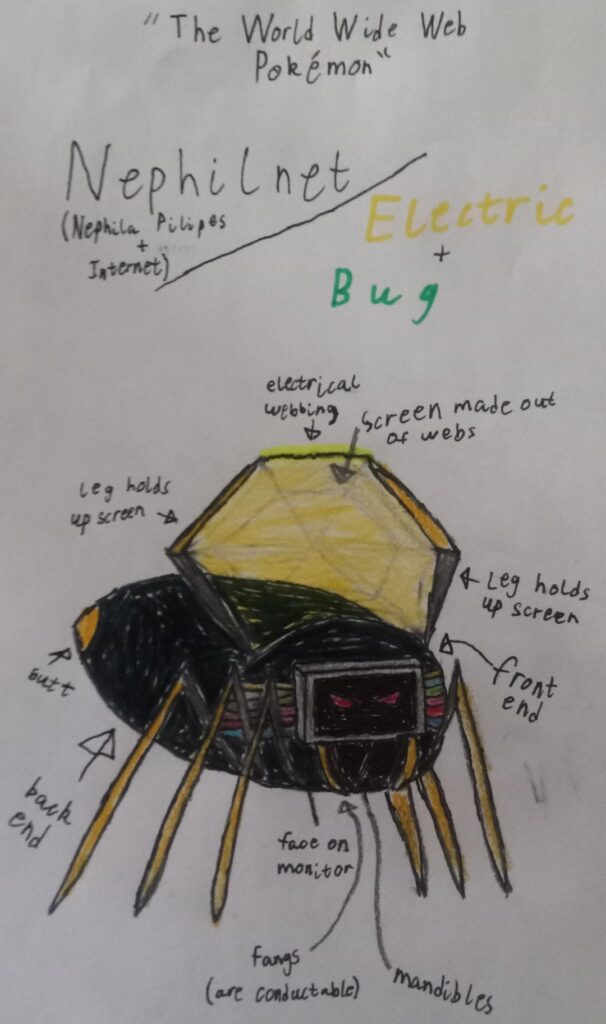 "The World Wide Web
Pokémon"
Nephilnet
(Nephila Pilipes
+
Internet)
Electric
+
Bug
electrical
webbing
Screen made out
of webs
leg holds
up screen
Leg holds
up screen
butt
front
end
back
end
face on
monitor
fangs
(are conductable)
mandibles